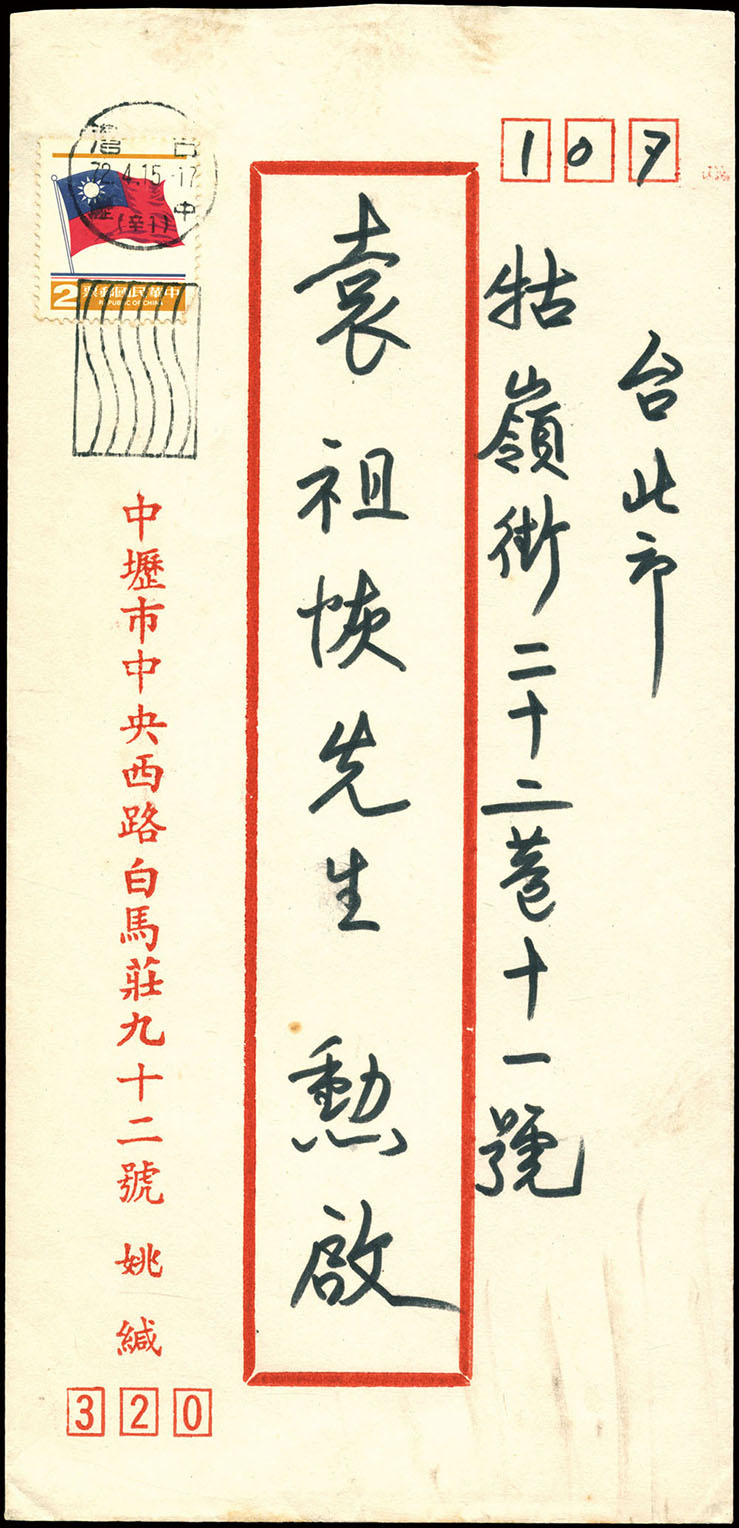 107
台北市
牯嶺街二十二巷十一號
袁祖恢先生 勳啟
台灣
72.4.15.17
中壢
中華民國郵票
REPUBLIC OF CHINA
2
中壢市中央西路白馬莊九十二號 姚緘
320